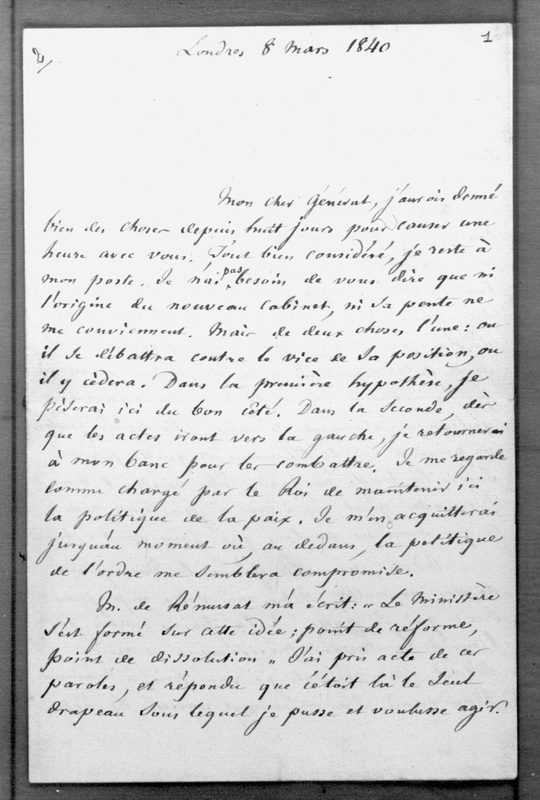 1
Londres 8 mars 1840
Mon cher Général, j'aurois donné
bien des choses depuis huit jours pour causer une
heure avec vous. Tout bien considéré, je reste à
mon poste. Je n'ai pas besoin de vous dire que ni
l'origine du nouveau Cabinet, ni sa pente ne
me conviennent. Mais de deux choses l'une : ou
il se débattra contre le vice de sa position, ou
il y cèdera. Dans la première hypothèse, je
pèserai ici du bon côté. Dans la seconde, dès
que les actes iront vers la gauche, je retournerai
à mon banc pour les combattre. Je me regarde
comme chargé par le Roi de maintenir ici
la politique de la paix. Je m'en acquitterai
jusqu'au moment où, au dedans, la politique
de l'ordre me semblera compromise.
M. de Rémusat m'a écrit : « Le Ministère
s'est formé sur cette idée ; point de réforme,
point de dissolution » J'ai pris acte de ces
paroles, et répondu que c'étoit là le seul
drapeau sous lequel je pusse et voulusse agir.